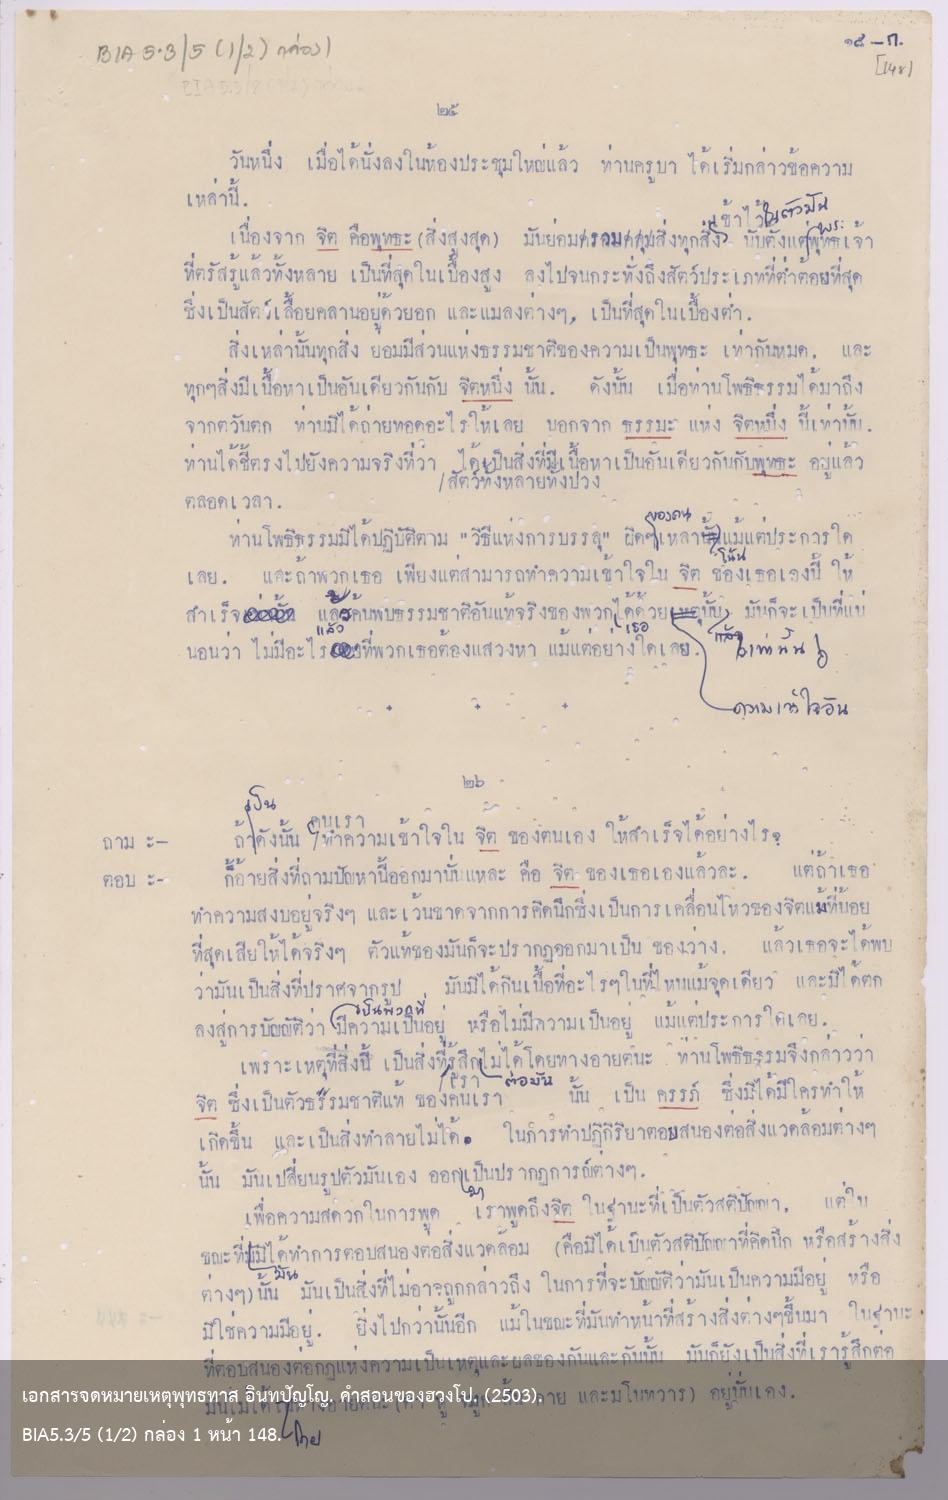 BIA 5.3/5 (1/2) กล่อง 1
๑๕ – ก.
[148]
๒๕
วันหนึ่ง เมื่อได้นั่งลงในห้องประชุมใหญ่แล้ว ท่านครูบา ได้เริ่มกล่าวข้อความ
เหล่านี้.
เข้าไว้ในตัวมัน
พระ
เนื่องจาก จิต คือพุทธะ (สิ่งสูงสุด) มันย่อมรวมสิ่งทุกสิ่ง นับตั้งแต่พุทธเจ้า
ที่ตรัสรู้แล้วทั้งหลาย เป็นที่สุดในเบื้องสูง ลงไปจนกระทั่งถึงสัตว์ประเภทที่ต่ำต้อยที่สุด
ซึ่งเป็นสัตว์เลื้อยคลานอยู่ด้วยอก และแมลงต่างๆ, เป็นที่สุดในเบื้องต่ำ.
สิ่งเหล่านั้นทุกสิ่ง ย่อมมีส่วนแห่งธรรมชาติของความเป็นพุทธะ เท่ากันหมด. และ
ทุกๆสิ่งมีเนื้อหาเป็นอันเดียวกันกับ จิตหนึ่ง นั้น. ดังนั้น เมื่อท่านโพธิธรรมได้มาถึง
จากตวันตก ท่านมิได้ถ่ายทอดอะไรให้เลย นอกจาก ธรรมะ แห่ง จิตหนึ่ง นี้เท่านั้น.
ท่านได้ชี้ตรงไปยังความจริงที่ว่า ได้เป็นสิ่งที่มีเนื้อหาเป็นอันเดียวกันกับพุทธะ อยู่แล้ว
/สัตว์ทั้งหลายทั้งปวง
ตลอดเวลา.
ของคน
ท่านโพธิธรรมมิได้ปฏิบัติตาม "วิธีแห่งการบรรลุ" ผิดๆเหล่านั้นแม้แต่ประการใด
โน้น
เลย. และถ้าพวกเธอ เพียงแต่สามารถทำความเข้าใจใน จิต ของเธอเองนี้ ให้
สำเร็จ และค้นพบธรรมชาติอันแท้จริงของพวกได้ด้วย นั้น มันก็จะเป็นที่แน่
แล้ว
เธอ
แล้ว
เท่านั้น
นอนว่า ไม่มีอะไรที่พวกเธอต้องแสวงหา แม้แต่อย่างใดเลย.
ความเข้าใจอัน
๒๖
เป็น
คนเรา
ถาม ะ– ถ้าดังนั้น /ทำความเข้าใจใน จิต ของตนเอง ให้สำเร็จได้อย่างไร?
ตอบ ะ– ก็อ้ายสิ่งที่ถามปัญหานี้ออกมานั่นแหละ คือ จิต ของเธอเองแล้วละ. แต่ถ้าเธอ
ทำความสงบอยู่จริงๆ และเว้นขาดจากการคิดนึกซึ่งเป็นการเคลื่อนไหวของจิตแม้ที่น้อย
ที่สุดเสียให้ได้จริงๆ ตัวแท้ของมันก็จะปรากฏออกมาเป็น ของว่าง. แล้วเธอจะได้พบ
ว่ามันเป็นสิ่งที่ปราศจากรูป มันมิได้กินเนื้อที่อะไรๆในที่ไหนแม้จุดเดียว และมิได้ตก
เป็นพวกที่
ลงสู่การบัญญัติว่า มีความเป็นอยู่ หรือไม่มีความเป็นอยู่ แม้แต่ประการใดเลย.
เพราะเหตุที่สิ่งนี้ เป็นสิ่งที่รู้สึกไม่ได้โดยทางอายตนะ ท่านโพธิธรรมจึงกล่าวว่า
/เรา ต่อมัน
จิต ซึ่งเป็นตัวธรรมชาติแท้ ของคนเรา นั้น เป็น ครรภ์ ซึ่งมิได้มีใครทำให้
เกิดขึ้น และเป็นสิ่งทำลายไม่ได้. ในการทำปฏิกิริยาตอบสนองต่อสิ่งแวดล้อมต่างๆ
นั้น มันเปลี่ยนรูปตัวมันเอง ออกเป็นปรากฏการณ์ต่างๆ.
มา
เพื่อความสดวกในการพูด เราพูดถึงจิต ในฐานะที่เป็นตัวสติปัญญา, แต่ใน
ขณะที่มิได้ทำการตอบสนองต่อสิ่งแวดล้อม (คือมิได้เป็นตัวสติปัญญาที่คิดนึก หรือสร้างสิ่ง
มัน
ต่างๆ) นั้น มันเป็นสิ่งที่ไม่อาจถูกกล่าวถึง ในการที่จะบัญญัติว่ามันเป็นความมีอยู่ หรือ
มิใช่ความมีอยู่. ยิ่งไปกว่านั้นอีก แม้ในขณะที่มันทำหน้าที่สร้างสิ่งต่างๆขึ้นมา ในฐานะ
ที่ตอบสนองต่อกฎแห่งความเป็นเหตุและผลของกันและกันนั้น มันก็ยังเป็นสิ่งที่เรารู้สึกต่อ
มันไม่ได้ ทางอายตนะ (ตา หู จมูก ลิ้น กาย และมโนทวาร) อยู่นั่นเอง.
โดย
เอกสารจดหมายเหตุพุทธทาส อินทปัญโญ. คำสอนของฮวงโป. (2503).
BIA5.3/5 (1/2) กล่อง 1 หน้า 148.